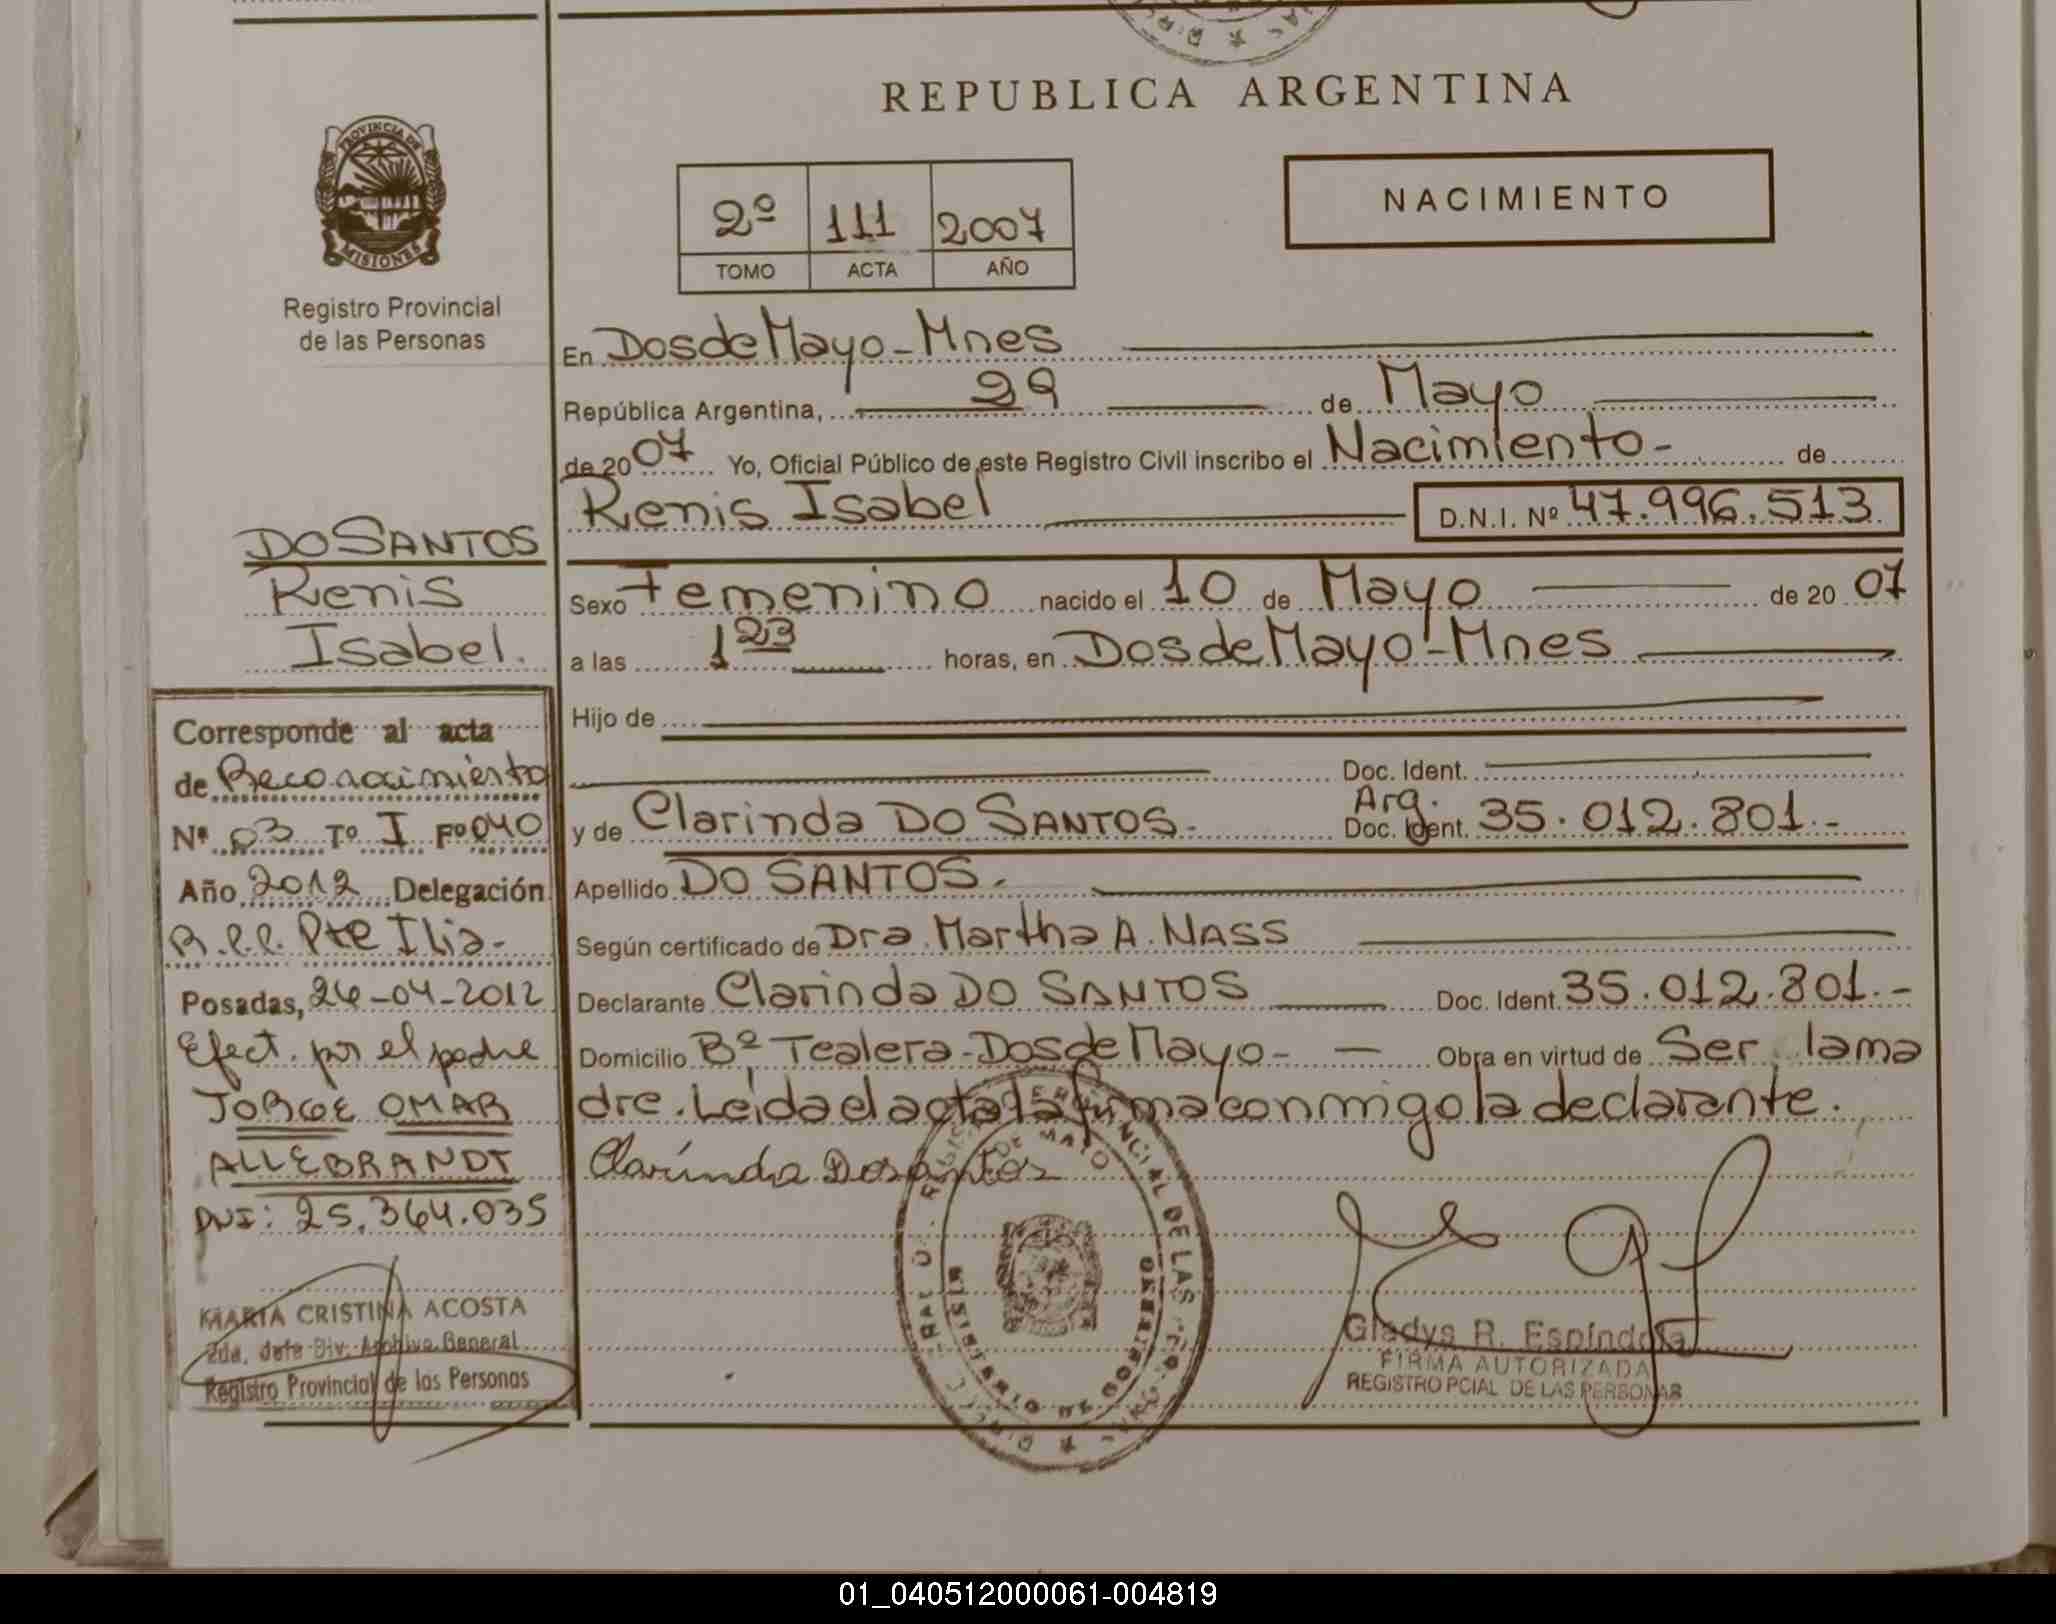 REPUBLICA ARGENTINA
PROVINCIA DE
MISIONES
Registro Provincial
de las Personas
2º 111 2007
TOMO ACTA AÑO
NACIMIENTO
En Dos de Mayo - Mnes
República Argentina, 29 de Mayo
de 2007 Yo, Oficial Público de este Registro Civil inscribo el Nacimiento - de
Renis Isabel D.N.I. Nº 47.996.513
Sexo Femenino nacido el 10 de Mayo de 2007
a las 1 23 horas, en Dos de Mayo - Mnes
Hijo de
Doc. Ident.
y de Clarinda DO SANTOS - Arg. Doc. Ident. 35.012.801.-
Apellido DO SANTOS.
Según certificado de Dra. Martha A. NASS
Declarante Clarinda DO SANTOS Doc. Ident. 35.012.801.-
Domicilio Bº Tealera - Dos de Mayo - Obra en virtud de Ser la ma
dre. Leída el acta la firma conmigo la declarante.
Clarinda Dosantos
DO SANTOS
Renis
Isabel.
Corresponde al acta
de Reconocimiento
Nº 03 Tº I Fº 040
Año 2012 Delegación
R.P.P. Pte Illia -
Posadas, 26-04-2012
Efect. por el padre
JORGE OMAR
ALLEBRANDT
DNI: 25.364.035
MARIA CRISTINA ACOSTA
2da. Jefe Div. Archivo General
Registro Provincial de las Personas
Gladys R. Espindola
FIRMA AUTORIZADA
REGISTRO PCIAL DE LAS PERSONAS
DE MAYO
01_040512000061-004819